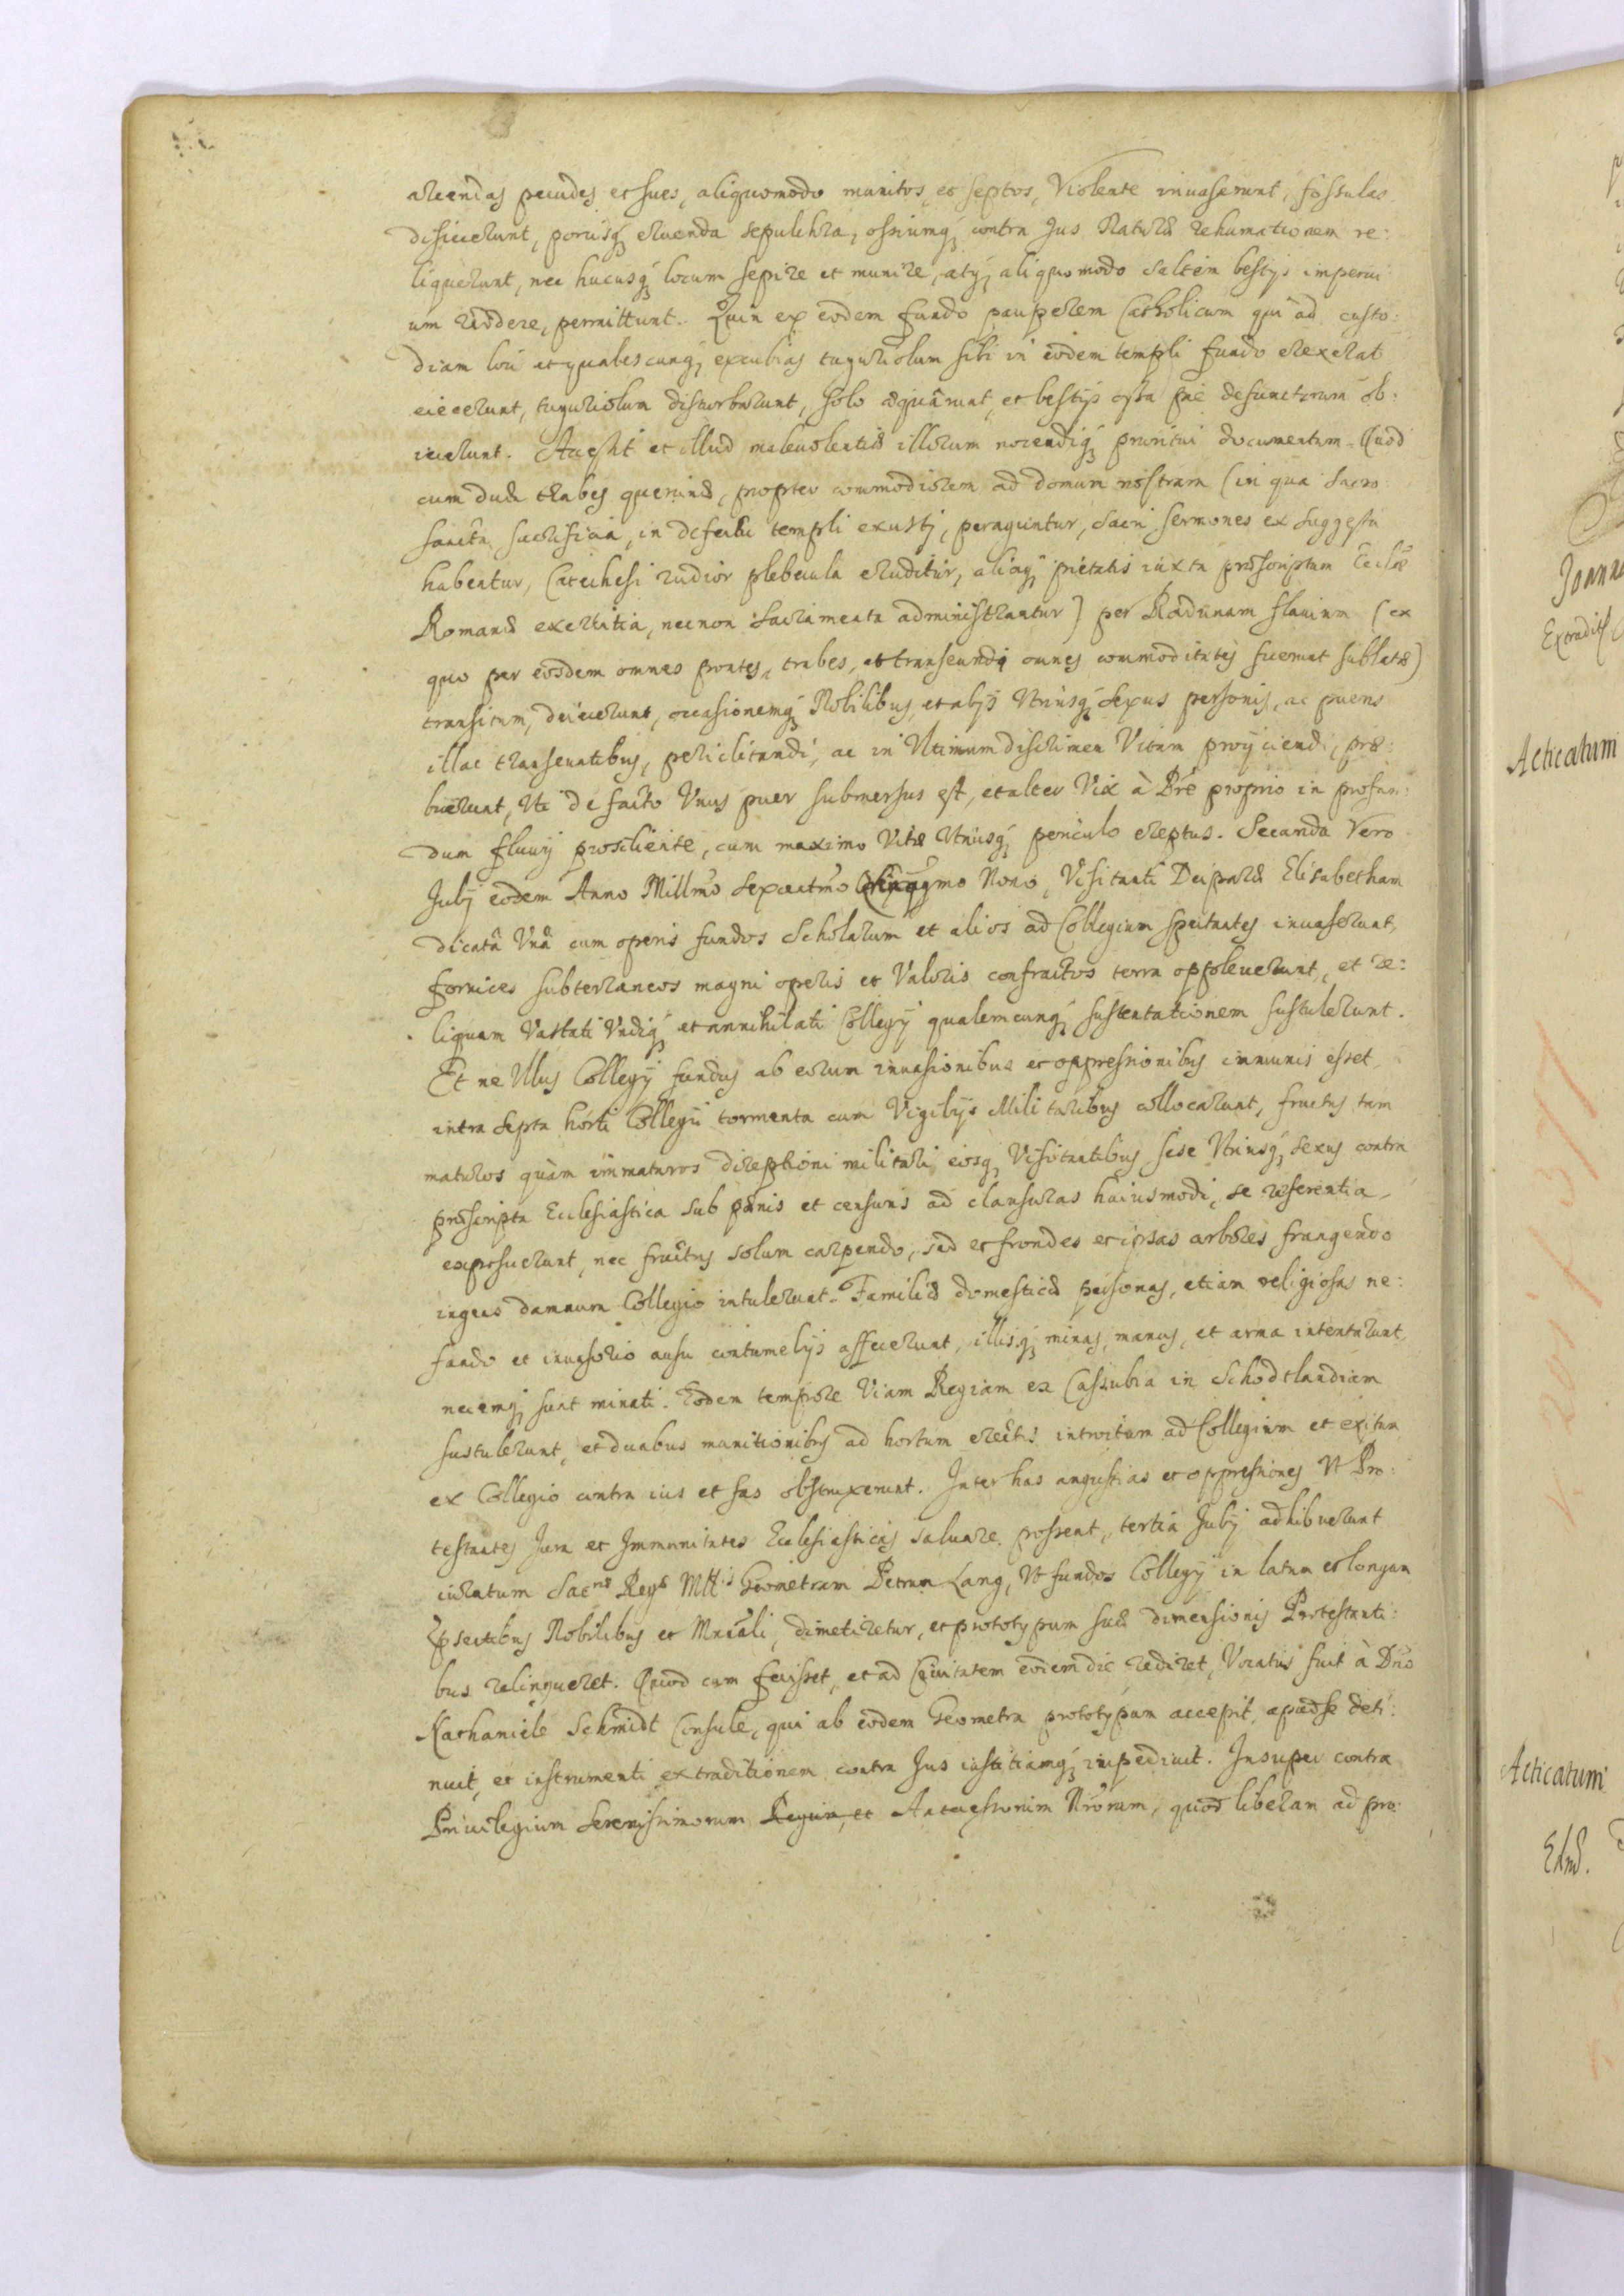 arcendas pecudes et sues, aliquomodo munitos, et septos, Violente inuaserunt, fossulas
disiecerunt, porcisq́ eruenda sepulchra, ossiumq́ contra Jus Naturæ exhumationem re:
liquerunt, nec hucusq́ locum sepire et munire, atq́ aliquomodo saltem bestijs imperui
um reddere, permittunt. Quin ex eodem fundo pauperem Catholicum qui ad custo:
diam loci et qualescunq́ excubias tuguriolum sibi in eodem templi fundo erexerat
eiecerunt, tuguriolum disturbarunt, solo æquârunt, et bestijs ossa piè defunctorum ob:
iecerunt. Accessit et illud maleuolentiæ illorum nocendiq́ pruritui documentum. Quod
cum duæ trabes quernæ, propter commodiorem ad domum nostram (in qua sacro
sancta sacrificia, in defectu templi exusti, peraguntur, sacri sermones ex suggestu
habentur, Catechesi rudior plebecula eruditur, aliaq́ pietatis iuxta præscriptum Ecclæ
Romanæ exercitia, necnon Sacramenta administrantur) per Radunam flauium (ex
quo per eosdem omnes pontes, trabes, et transeundi omnes commoditates fuerunt sublatæ)
transitum, deiecerunt, occasionemq́ Nobilibus, et alijs Vtriusq́ Sexus personis, ac pueris
illac transeuntibus, periclitandi, ac in Vltimum discrimen Vitam proijciendi, præ:
buerunt, Vti de facto Vnus puer submersus est, et alter Vix à Pre proprio in profun:
dum fluuij prosiliente, cum maximo Vitæ Vtriusq́ periculo ereptus. Secunda Vero
Julij eodem Anno Millmo Sexcentmo Nono, Visitanti Deiparæ Elisabetham
dicatâ Vnâ cum operis fundos Scholarum et alios ad Collegium spectantes inuaserunt,
fornices subterraneos magni operis et Valoris confractos terra oppleuerunt, et re:
liquam Vastati Vndiq́ et annihilati Collegij qualemcunq́ sustentationem sustulerunt.
Et ne Vllus Collegij fundus ab eorum inuasionibus et oppressionibus immunis esset,
intra septa horti Collegij tormenta cum Vigilijs Militaribus collocarunt, fructus tam
maturos quàm immaturos direptioni militari, eosq́ Visitantibus sese Vtriusq́ sexus contra
præscripta Ecclesiastica sub pœnis et censuris ad clausuras huiusmodi, se referentia,
exposuerunt, nec fructus solum carpendo, sed et frondes et ipsas arbores frangendo
ingens damnum Collegio intulerunt. Familiæ domesticæ personas, etiam religiosas ne:
fando et inuasorio ausu contumelijs affecerunt, illisq́ minas, manus, et arma intentarunt,
necemq́ sunt minati. Eodem tempore Viam Regiam ex Cassubia in Schodtlandiam
sustulerunt, et duabus munitionibus ad hortum erectis introitum ad Collegium et exitum
ex Collegio contra ius et fas obstruxerunt. Inter has angustias et oppressiones Vt Pro:
testantes Jura et Immunitates Ecclesiasticas saluare possent, tertia Julij adhibuerunt
iuratum Sacræ Regæ Mttis Geometram Petrum Lang, Vt fundos Collegij in latum et longum
præsentibus Nobilibus et Mrãli, dimetiretur, et prototypum suæ dimensionis Protestanti:
bus relinqueret. Quod cum fecisset, et ad Ciuitatem eodem die rediret, Vocatus fuit à Dno
Nathaniele Schmidt Consule, qui ab eodem Geometra prototypum accepit, apud se deti:
nuit, et instrumenti extraditionem contra Jus iustitiamq́ impediuit. Insuper contra
Priuilegium Serenissimorum Regum, et Antecessorum Nrorum, quod liberam ad pro:
Joanne
Extradit
Acticatum
Acticatum